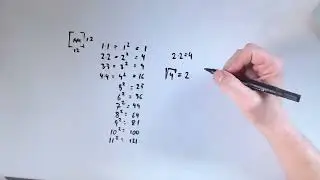 1·1 = 1² = 1
2·2 = 2² = 4
3·3 = 3² = 9
4·4 = 4² = 16
5² = 25
6² = 36
7² = 49
8² = 64
9² = 81
10² = 100
11² = 121
2·2=4
√4 = 2